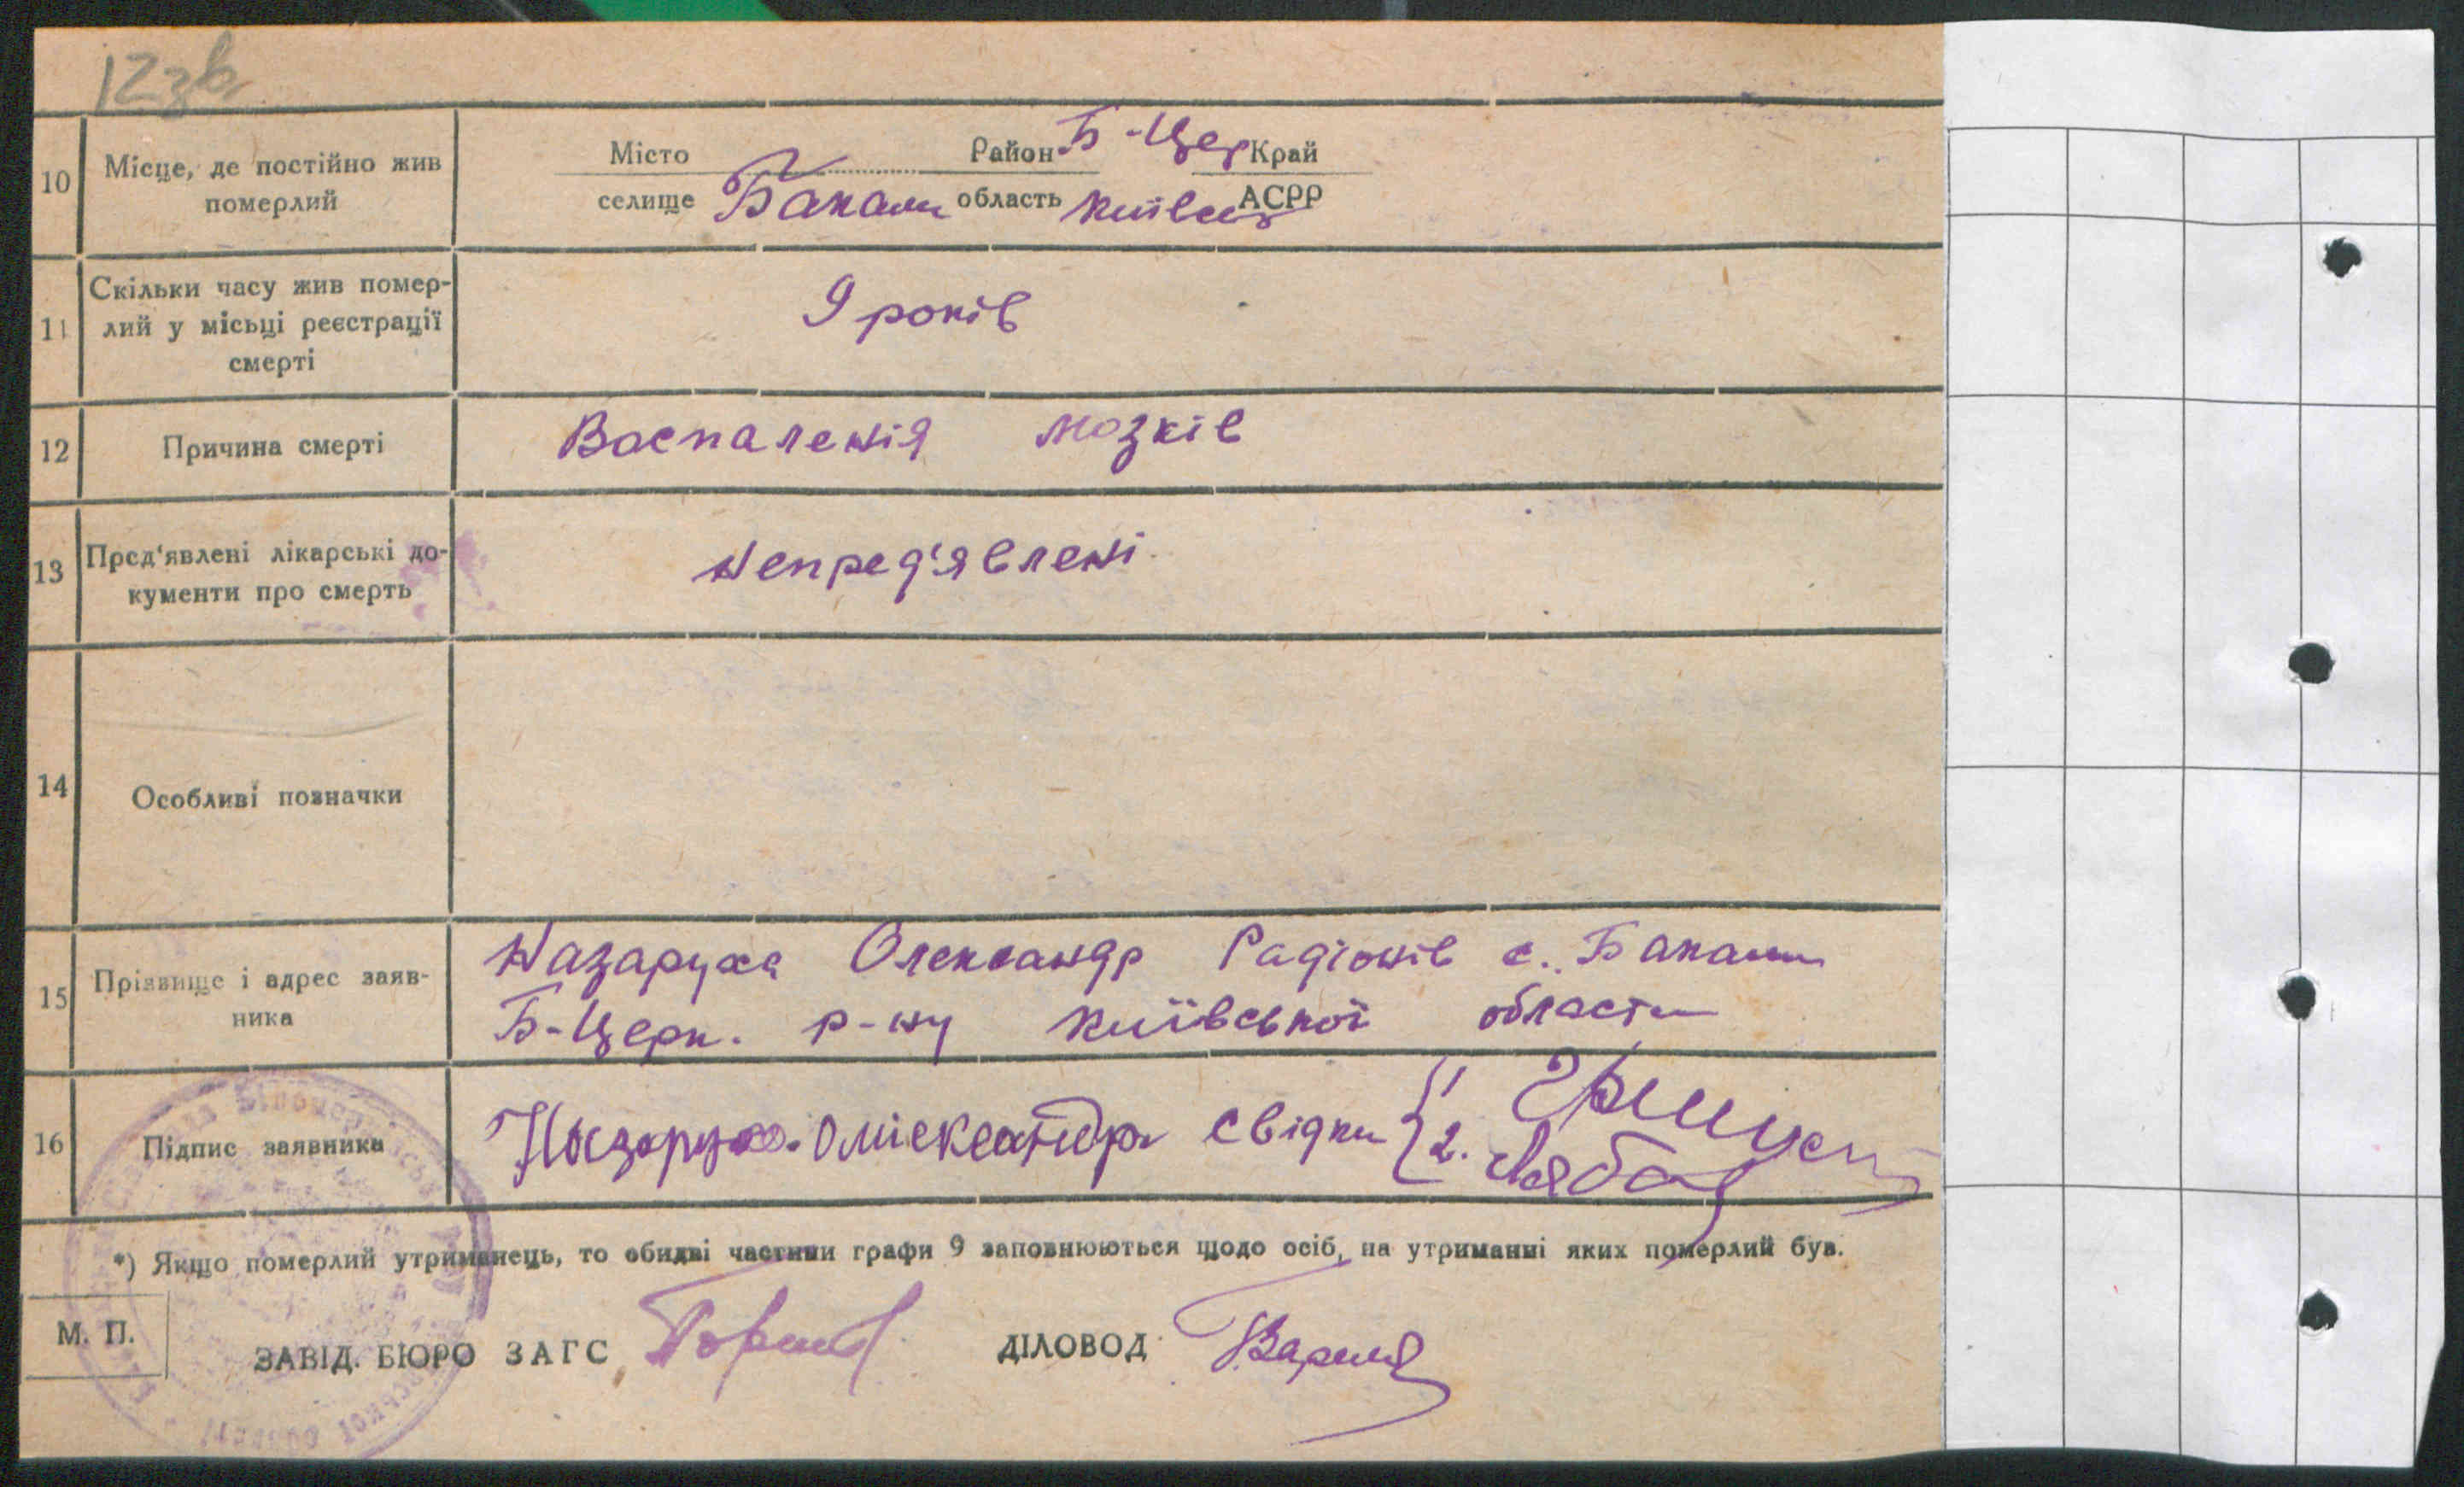 12зв
10 Місце, де постійно жив померлий
Місто Район Б-Цер Край
селище Бакали область Київськ АСРР
11 Скільки часу жив помер-
лий у місьці реєстрації
смерті
9 років
12 Причина смерті Воспаленія мозків
13 Пред'явлені лікарські до-
кументи про смерть
Непред'явлені
14 Особливі позначки
15 Прізвище і адрес заяв-
ника
Назаруха Олександр Радіонів с. Бакали
Б-Церк. р-ну Київської области
16 Підпис заявника Назаруха Олиександр Свідки { 1
2.
*) Якщо померлий утриманець, то обидві частини графи 9 заповнюються щодо осіб, на утриманні яких померлий був.
М. П.
ЗАВІД. БЮРО ЗАГС ДІЛОВОД